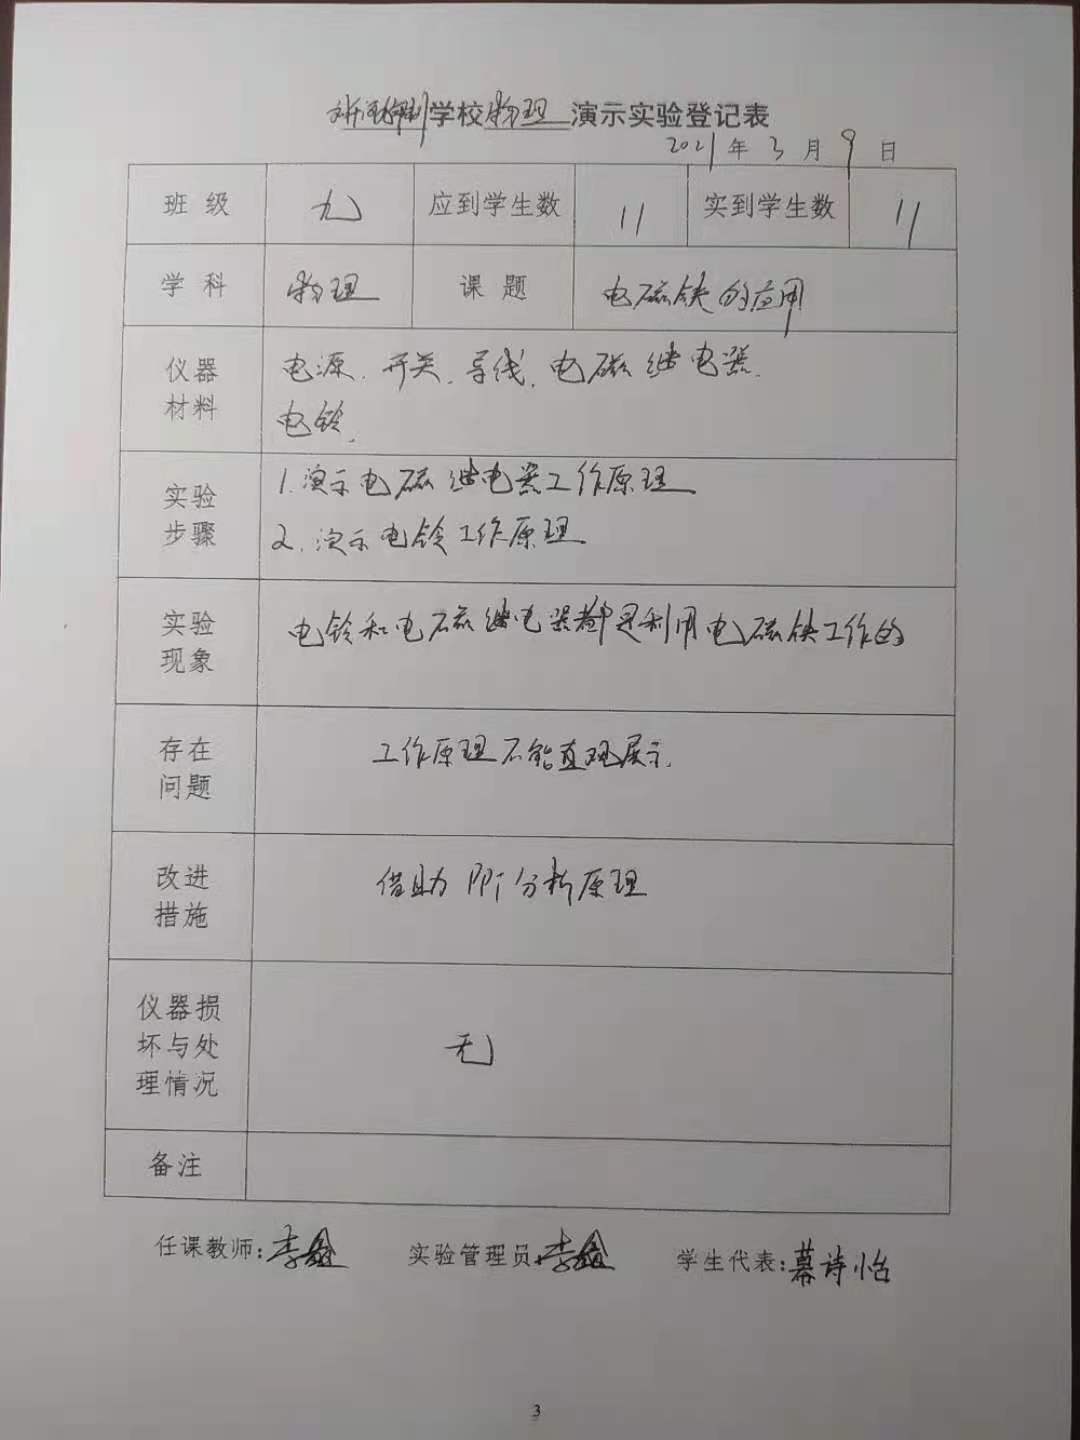 学校物理演示实验登记表
2021年3月9日
班级 九 应到学生数 11 实到学生数 11
学科 物理 课题 电磁铁的应用
仪器材料 电源、开关、导线、电磁继电器、
电铃、
实验步骤 1.演示电磁继电器工作原理
2.演示电铃工作原理
实验现象 电铃和电磁继电器都是利用电磁铁工作的
存在问题 工作原理不能直观展示.
改进措施 借助PPT分析原理
仪器损坏与处理情况 无
备注
任课教师:李 实验管理员:李 学生代表:慕诗怡
3